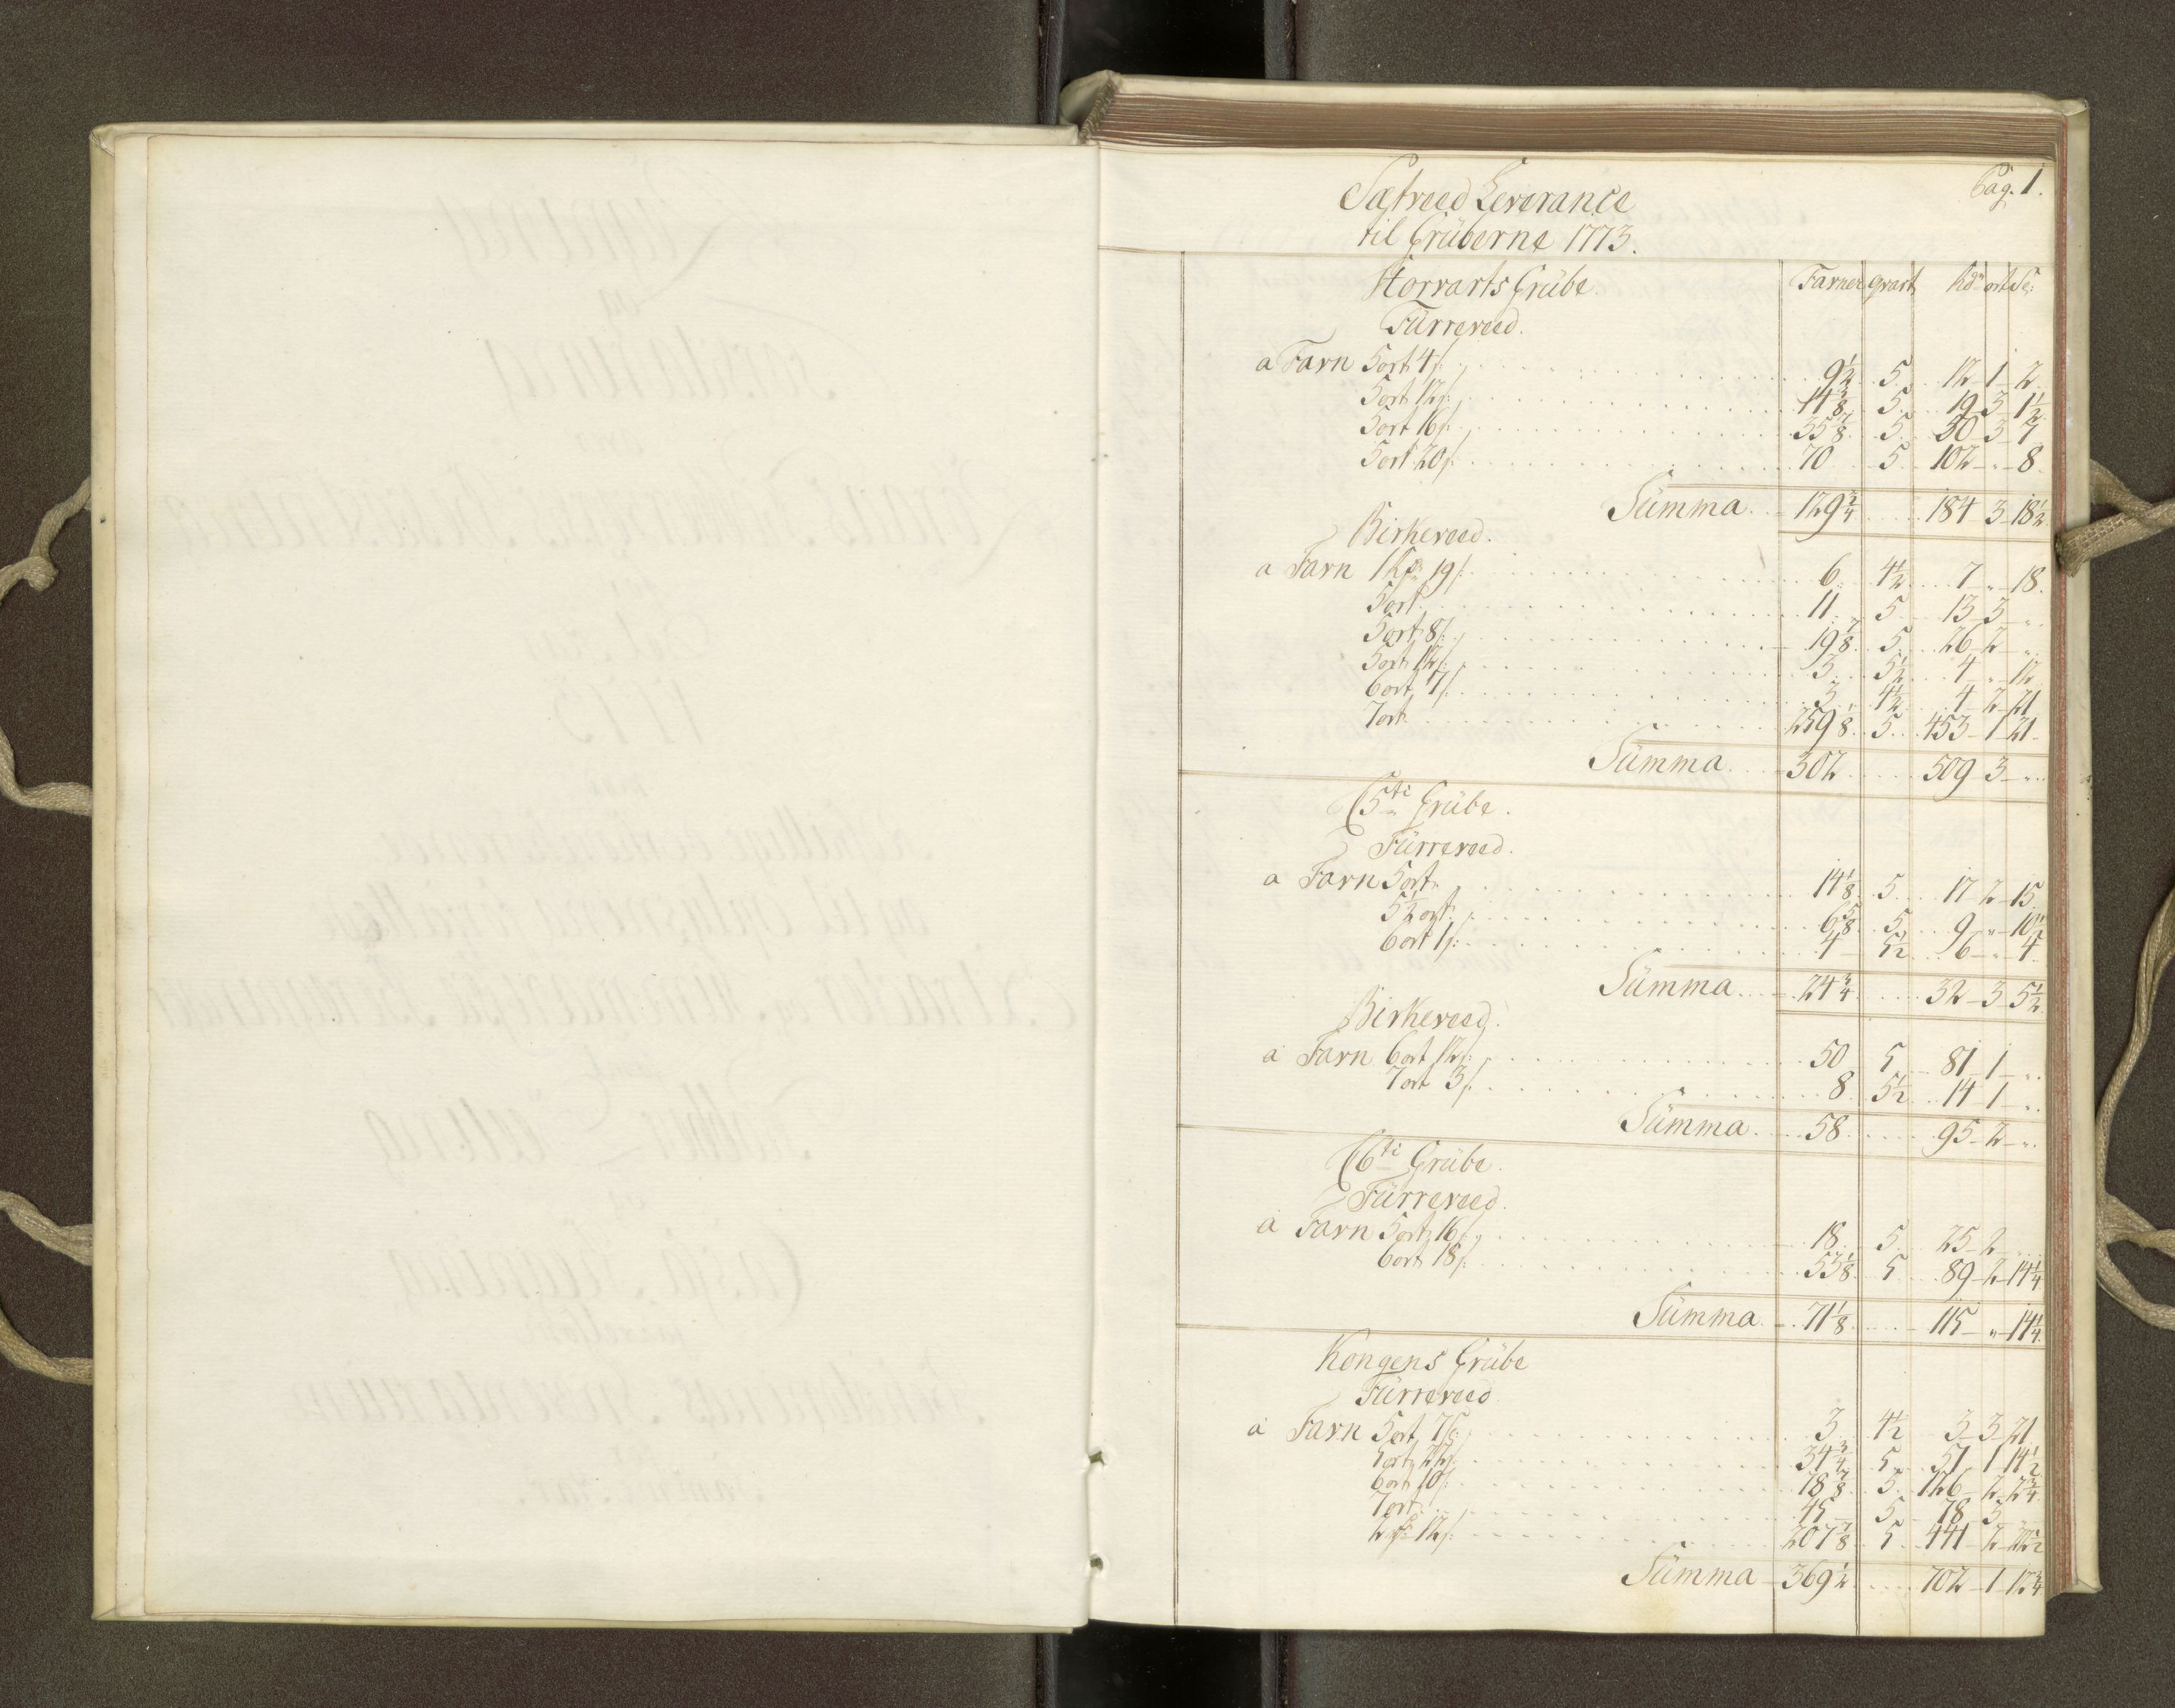 Pag. 1.
Sætveed Leverance
til Grüberne 1773.
Horvarts Grübe. Favner qvart Rdr ort s:
Fürreveed.
a Favn 5 ort 4 s: 9½ 5 12 1 2
5 ort 12 s: 14⅜ 5 19 3 1½
5 ort 16 s: 35⅞ 5 50 3 7
5 ort 20 s: 70 5 102 " 8
Summa 129¾ 184 3 18½
Birkeveed.
a Favn 1 Rdr 19 s: 6 4½ 7 " 18
5 ort 11 5 13 3 "
5 ort 8 s: 19⅞ 5 26 2 "
5 ort 12 s: 3 5½ 4 " 12
6 ort 7 s: 3 4½ 4 2 21
7 ort 259⅛ 5 453 1 21
Summa 302 509 3 "
C 5te Grübe.
Fürreveed.
a Favn 5 ort 14⅛ 5 17 2 15
5½ ort 6⅝ 5 9 " 10½
6 ort 1 s: 4 5½ 6 " 4
Summa 24¾ 32 3 5½
Birkeveed.
a Favn 6 ort 12 s: 50 5 81 1 "
7 ort 3 s: 8 5½ 14 1 "
Summa 58 95 2 "
C 6te Grübe.
Fürreveed.
a Favn 5 ort 16 s: 18 5 25 2 "
6 ort 18 s: 53⅛ 5 89 2 14¼
Summa 71⅛ 115 " 14¼
Kongens Grübe
Fürreveed
a Favn 5 ort 7 s: 3 4½ 3 3 21
5 ort 22 s: 34¾ 5 51 1 14½
6 ort 10 s: 78⅞ 5 126 2 2¾
7 ort 45 5 78 3 "
2 Rdr 12 s: 207⅞ 5 441 2 22½
Summa 369½ 702 1 12¾